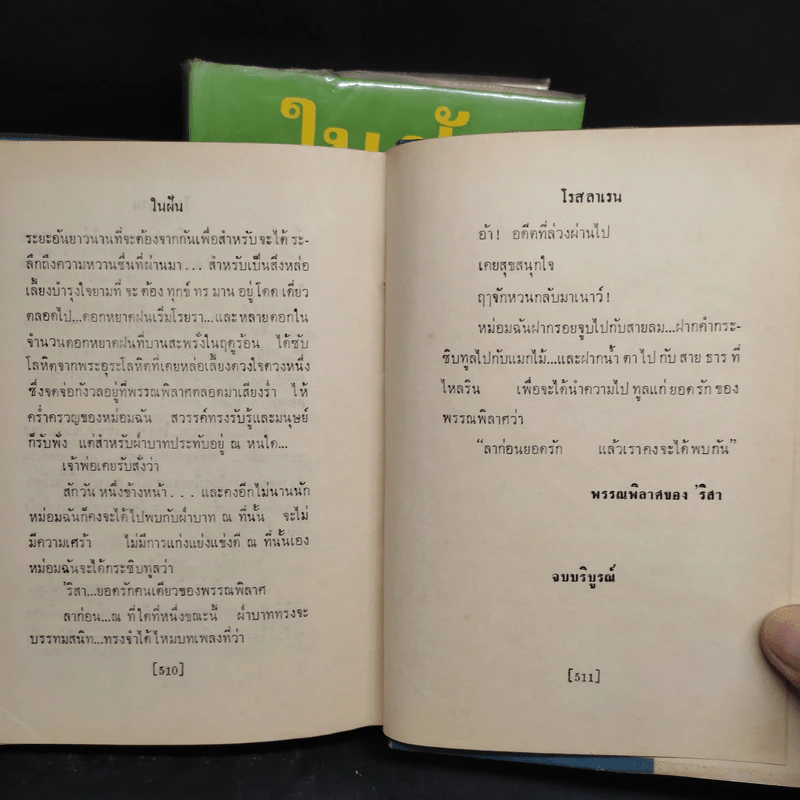 ในฝัน
ระยะอันยาวนานที่จะต้องจากกันเพื่อสำหรับจะได้ ระ-
ลึกถึงความหวานชื่นที่ผ่านมา... สำหรับเป็นสิ่งหล่อ
เลี้ยงบำรุงใจยามที่ จะ ต้อง ทุกข์ ทร มาน อยู่ โดด เดี่ยว
ตลอดไป...ดอกหยาดฝนเริ่มโรยรา...และหลายดอกใน
จำนวนดอกหยาดฝนที่บานสะพรั่งในฤดูร้อน ได้ซับ
โลหิตจากพระอุระโลหิตที่เคยหล่อเลี้ยงดวงใจดวงหนึ่ง
ซึ่งจดจ่อกังวลอยู่ที่พรรณพิลาศตลอดมาเสียงร่ำ ไห้
คร่ำครวญของหม่อมฉัน สวรรค์ทรงรับรู้และมนุษย์
ก็รับฟัง แต่สำหรับฝ่าบาทประทับอยู่ ณ หนใด...
เจ้าพ่อเคยรับสั่งว่า
สักวัน หนึ่งข้างหน้า... และคงอีกไม่นานนัก
หม่อมฉันก็คงจะได้ไปพบกับฝ่าบาท ณ ที่นั้น จะไม่
มีความเศร้า ไม่มีการแก่งแย่งแข่งดี ณ ที่นั้นเอง
หม่อมฉันจะได้กระซิบทูลว่า
'ริสา...ยอดรักคนเดียวของพรรณพิลาศ
ลาก่อน...ณ ที่ใดที่หนึ่งขณะนี้ ฝ่าบาททรงจะ
บรรทมสนิท...ทรงจำได้ไหมบทเพลงที่ว่า
[510]
โรสลาเรน
อ้า! อดีตที่ล่วงผ่านไป
เคยสุขสนุกใจ
ฤาจักหวนกลับมาเนาว์!
หม่อมฉันฝากรอยจูบไปกับสายลม...ฝากคำกระ-
ซิบทูลไปกับแมกไม้...และฝากน้ำ ตา ไป กับ สาย ธาร ที่
ไหลริน เพื่อจะได้นำความไป ทูลแก่ ยอด รัก ของ
พรรณพิลาศว่า
“ลาก่อนยอดรัก แล้วเราคงจะได้พบกัน”
พรรณพิลาศของ 'ริสา
จบบริบูรณ์
[511]